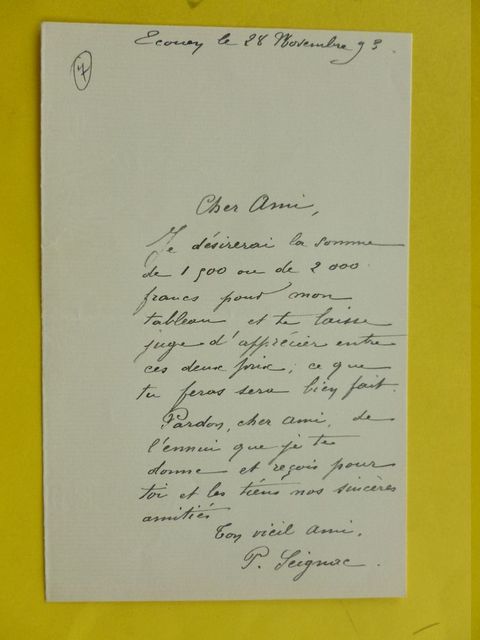 Ecouen le 28 Novembre 93.
7
Cher Ami,
Je désirerai la somme
de 1500 ou de 2000
francs pour mon
tableau et te laisse
juge d'apprécier entre
ces deux prix; ce que
tu feras sera bien fait.
Pardon, cher ami, de
l'ennui que je te
donne et reçois pour
toi et les tiens nos sincères
amitiés
Ton vieil ami.
P. Seignac.